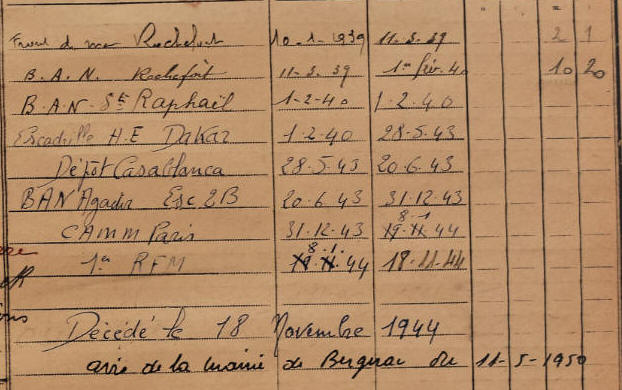 Front de mer Rochefort 10-1-1939 11-3-39 2 1
B.A.N. Rochefort 11-3-39 1er fév. 40 10 20
B.A.N. St Raphaël 1-2-40 1.2.40
Escadrille H.E Dakar 1.2.40 28.5.43
Dépôt Casablanca 28.5.43 20.6.43
BAN Agadir Esc 2B 20.6.43 31.12.43
CAMM Paris 31.12.43 8.1.44
1er RFM 8.1.44 18.11.44
Décédé le 18 Novembre 1944
avis de la mairie de Bergerac du 11-5-1950